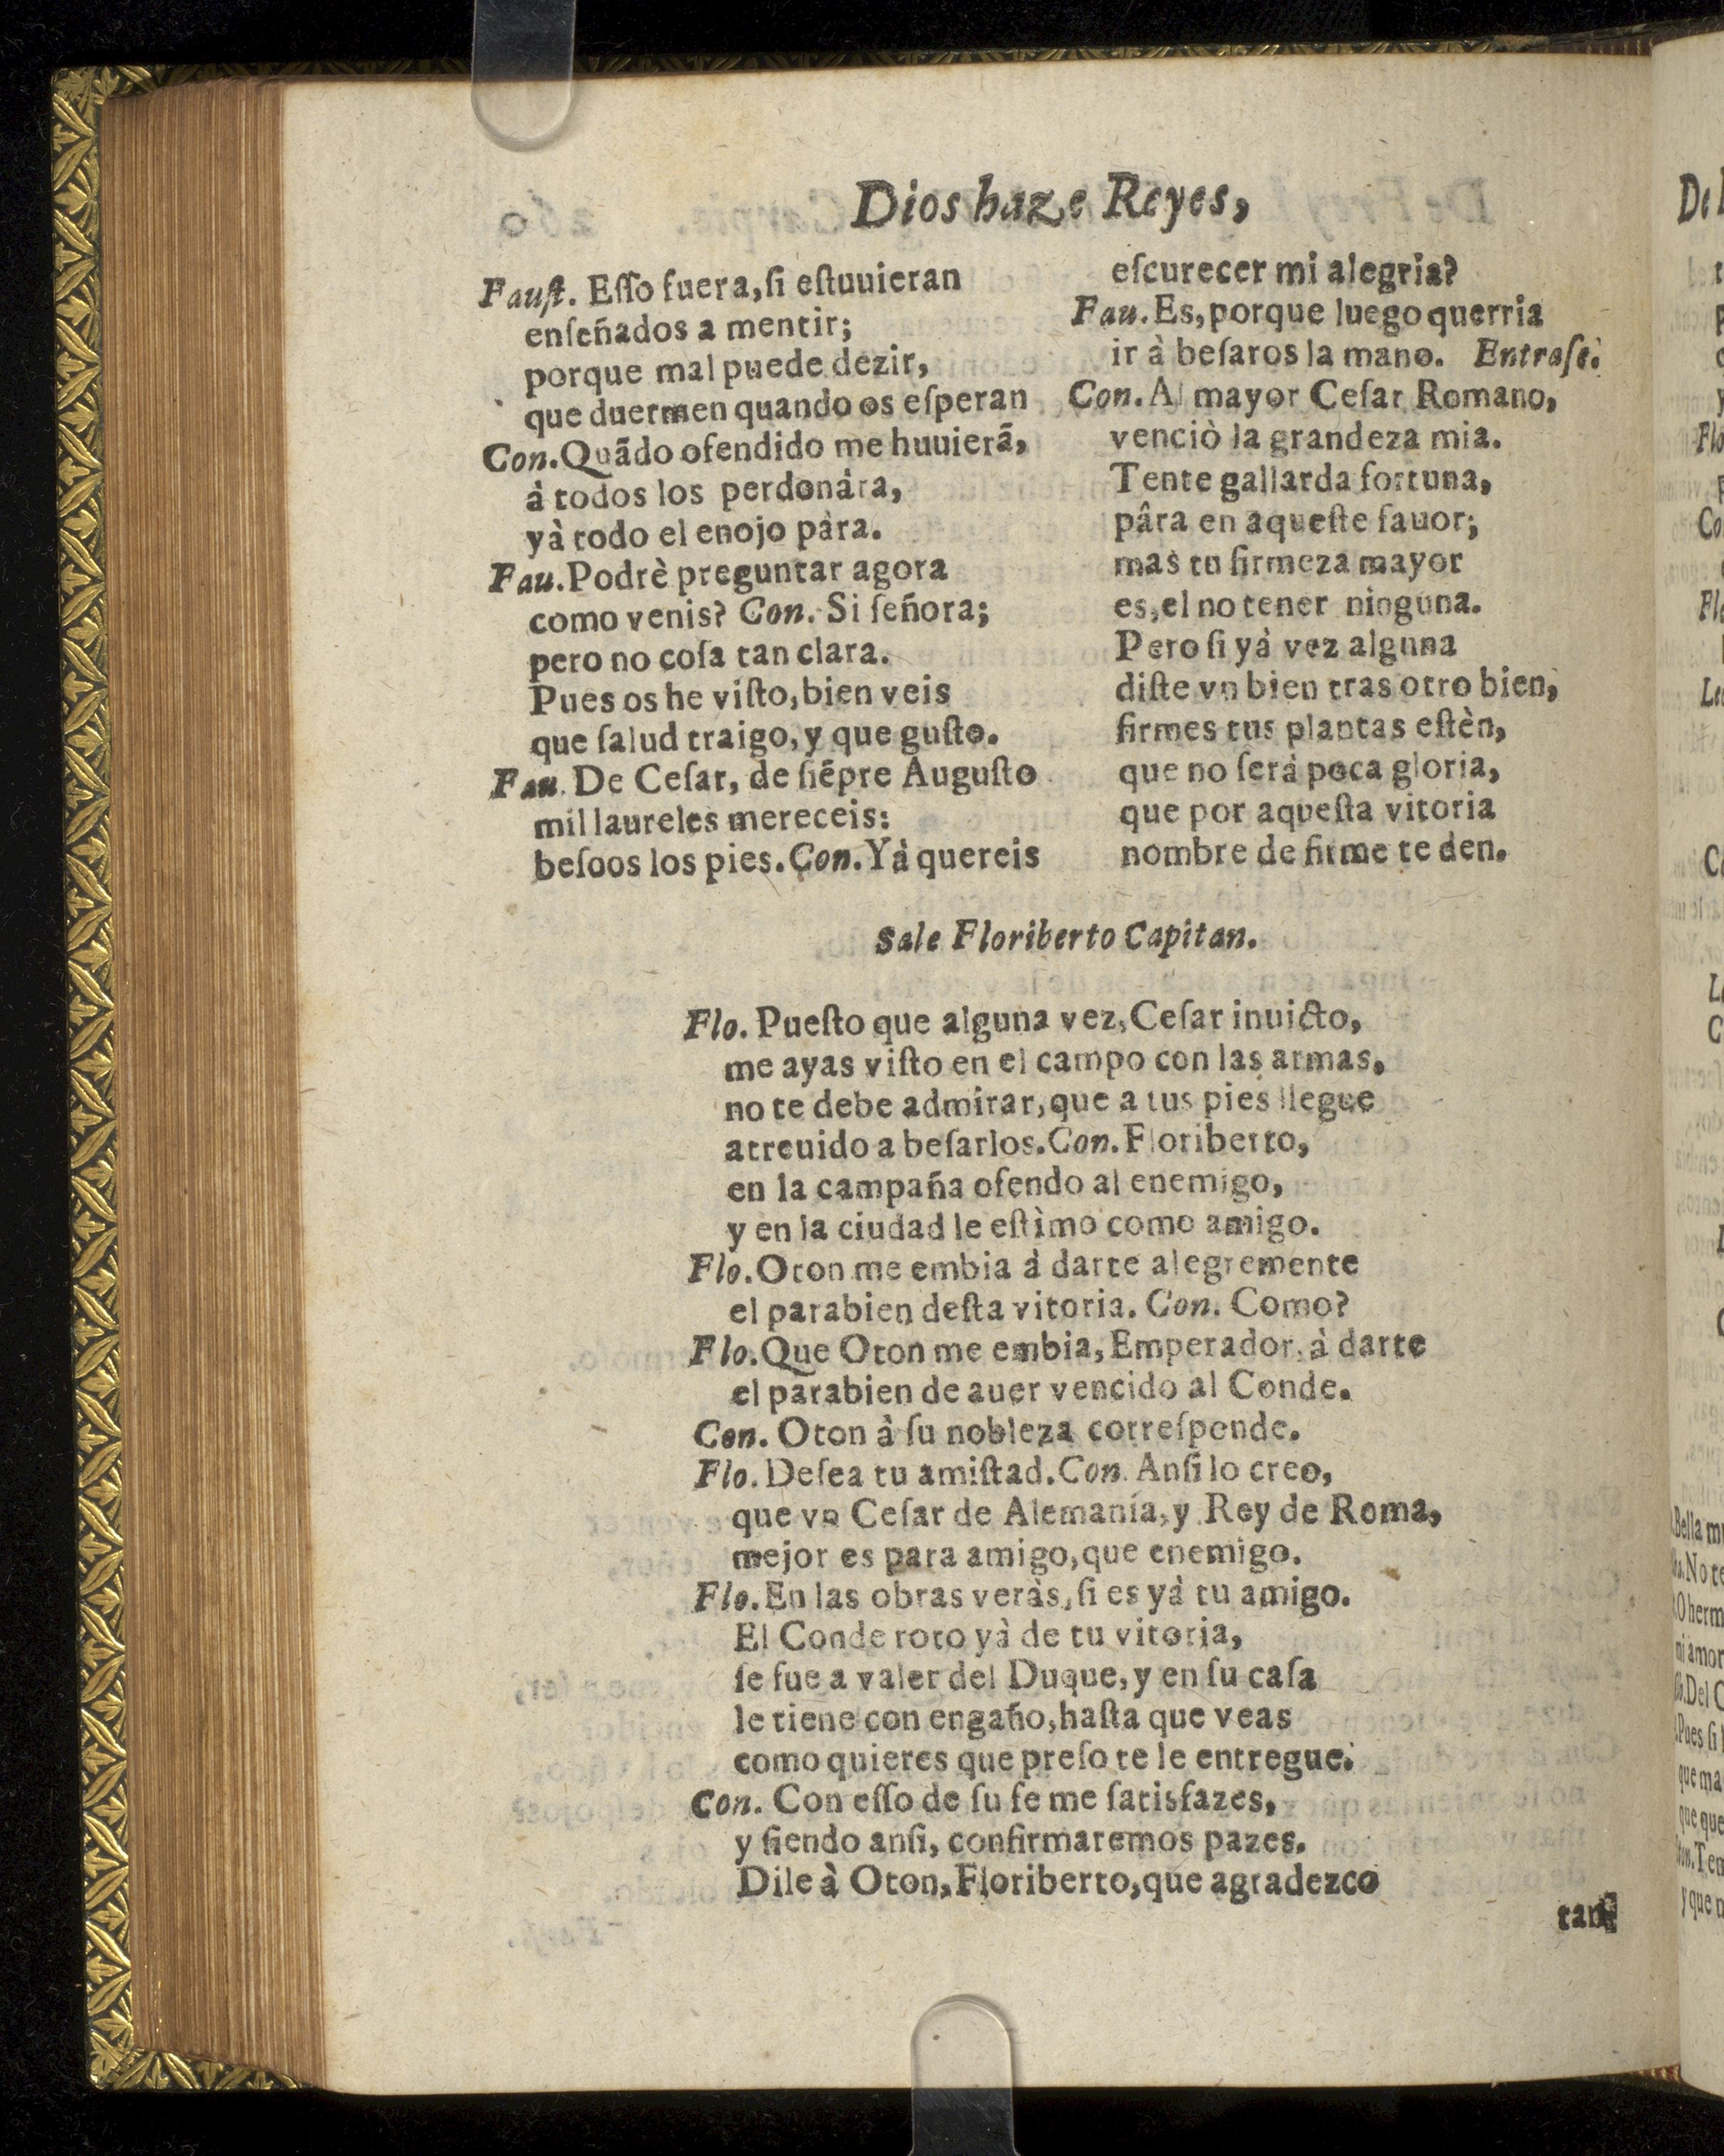 Dios haze Reyes,
Fauſt. Eſſo fuera, ſi eſtuuieran
enſeñados a mentir;
porque mal puede dezir,
que duermen quando os eſperan
Con. Quãdo ofendido me huuierã,
à todos los perdonàra,
yà todo el enojo pàra.
Fau. Podrè preguntar agora
como venis? Con. Si ſeñora;
pero no coſa tan clara.
Pues os he viſto, bien veis
que ſalud traigo, y que guſto.
Fau. De Ceſar, de ſiẽpre Auguſto
mil laureles mereceis:
beſoos los pies. Con. Yà quereis
eſcurecer mi alegria?
Fau. Es, porque luego querria
ir à beſaros la mano. Entraſe.
Con. Al mayor Ceſar Romano,
venciò la grandeza mia.
Tente gallarda fortuna,
pâra en aqueſte fauor;
mas tu firmeza mayor
es, el no tener ninguna.
Pero ſi yà vez alguna
diſte vn bien tras otro bien,
firmes tus plantas eſtèn,
que no ſerà poca gloria,
que por aqueſta vitoria
nombre de firme te den.
Sale Floriberto Capitan.
Flo. Pueſto que alguna vez, Ceſar inuicto,
me ayas viſto en el campo con las armas,
no te debe admirar, que a tus pies llegue
atreuido a beſarlos. Con. Floriberto,
en la campaña ofendo al enemigo,
y en la ciudad le eſtìmo como amigo.
Flo. Oton me embia à darte alegremente
el parabien deſta vitoria. Con. Como?
Flo. Que Oton me embia, Emperador, à darte
el parabien de auer vencido al Conde.
Con. Oton à ſu nobleza correſponde.
Flo. Deſea tu amiſtad. Con. Anſi lo creo,
que vn Ceſar de Alemanía, y Rey de Roma,
mejor es para amigo, que enemigo.
Flo. En las obras veràs, ſi es yà tu amigo.
El Conde roto yà de tu vitoria,
ſe fue a valer del Duque, y en ſu caſa
le tiene con engaño, haſta que veas
como quieres que preſo te le entregue.
Con. Con eſſo de ſu fe me ſatisfazes,
y ſiendo anſi, confirmaremos pazes.
Dile à Oton, Floriberto, que agradezco